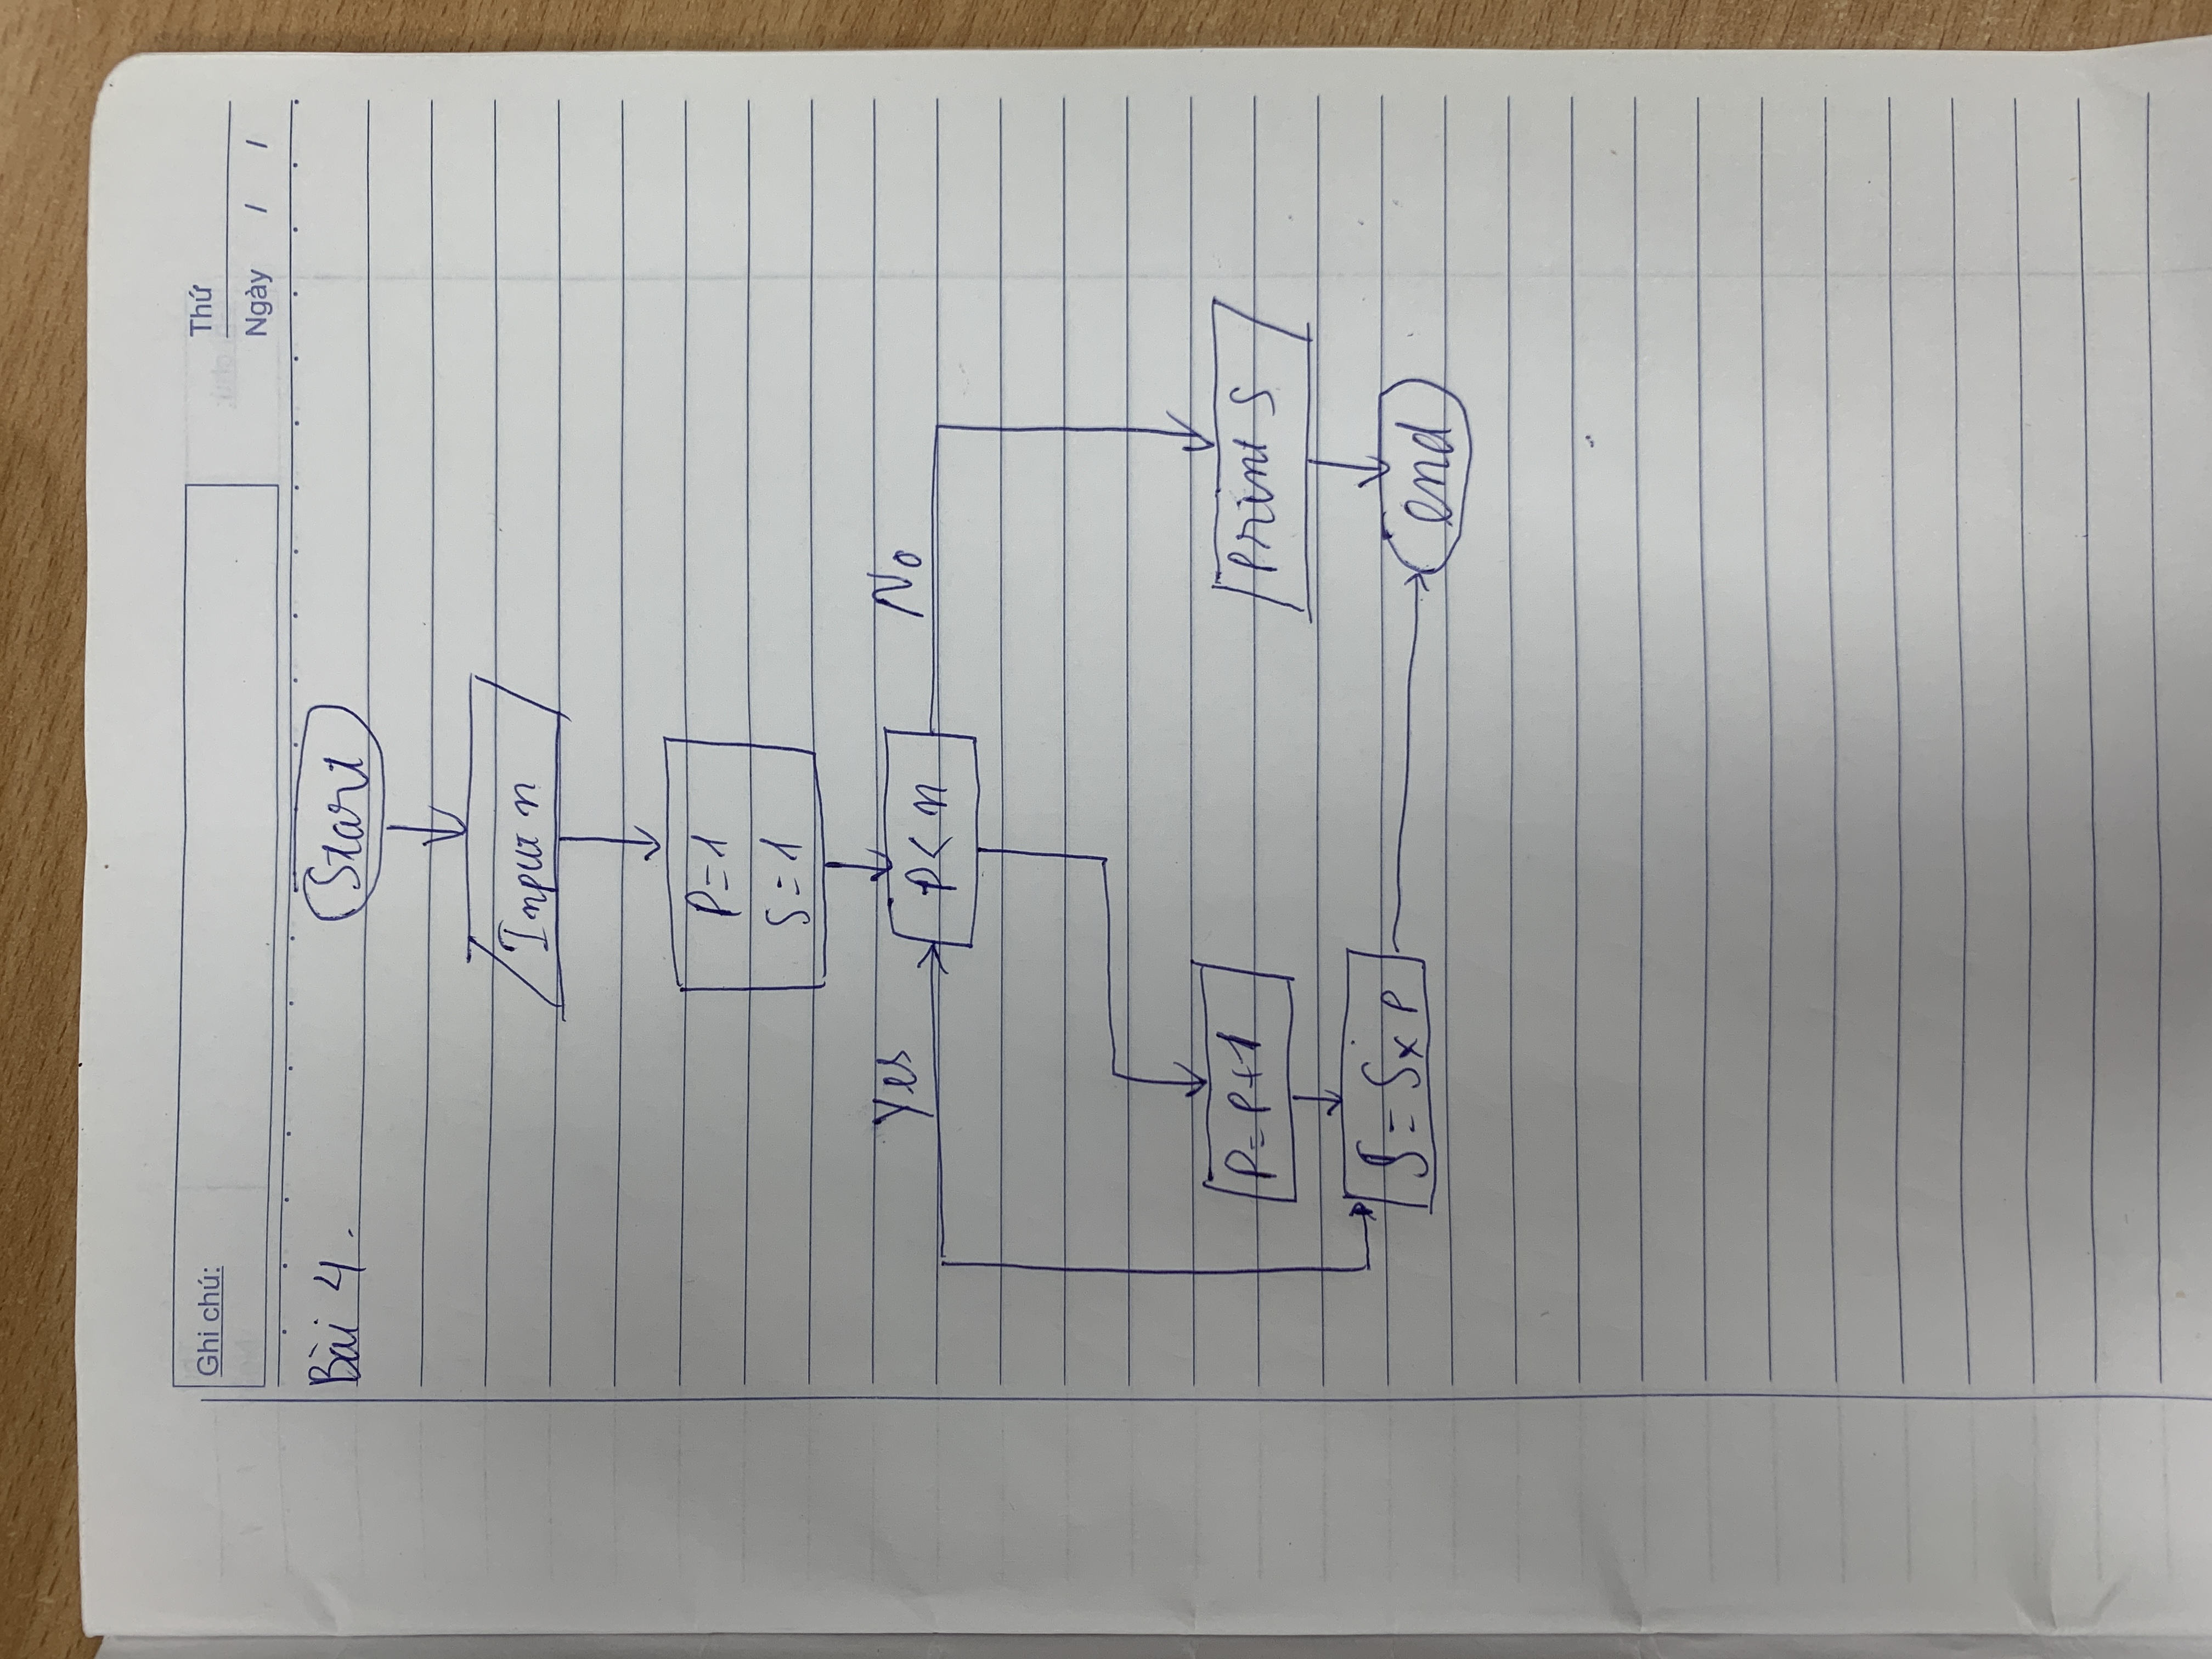 Ghi chú:
Thứ
Ngày / /
Bài 4.
Start
Input n
P=1
S=1
Yes
P< n
No
P=P+1
Print S
S=SxP
end